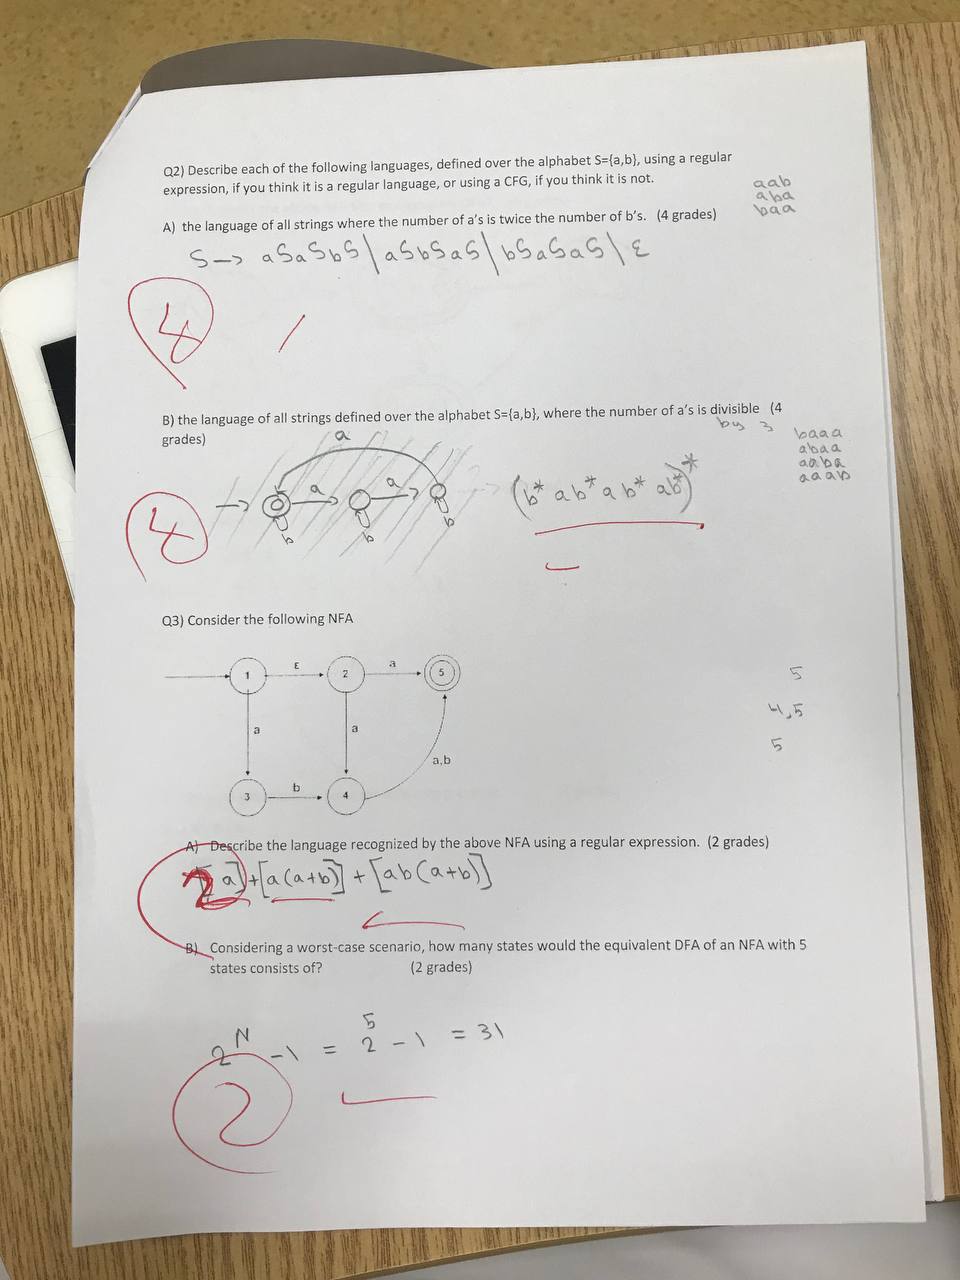 Q2) Describe each of the following languages, defined over the alphabet S={a,b}, using a regular
expression, if you think it is a regular language, or using a CFG, if you think it is not.
aab
aba
baa
A) the language of all strings where the number of a's is twice the number of b's. (4 grades)
S → aSaSbS | aSbSaS | bSaSaS | ε
4
B) the language of all strings defined over the alphabet S={a,b}, where the number of a's is divisible (4
by 3
grades)
baaa
abaa
aaba
aaab
a
a a
b b b
(b* ab* ab* ab*)*
4
Q3) Consider the following NFA
1 ε 2 a 5
a a a,b
3 b 4
5
4,5
5
A) Describe the language recognized by the above NFA using a regular expression. (2 grades)
[a]+[a(a+b)] + [ab(a+b)]
2
B) Considering a worst-case scenario, how many states would the equivalent DFA of an NFA with 5
states consists of? (2 grades)
2^N -1 = 2^5 - 1 = 31
2